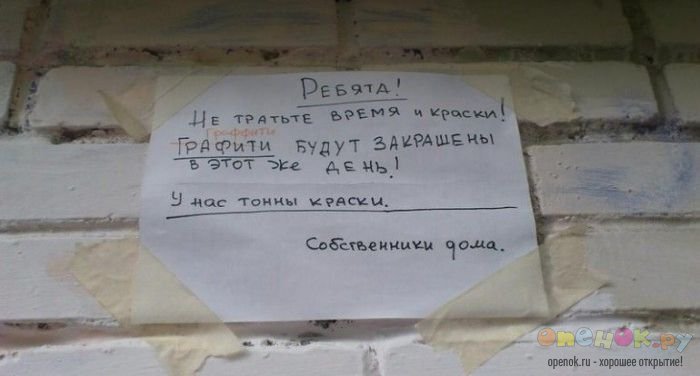 Ребята!
Не тратьте время и краски!
Граффити
Графити будут закрашены
в этот же день!
У нас тонны краски.
Собственники дома.
опенок.ру
openok.ru - хорошее открытие!